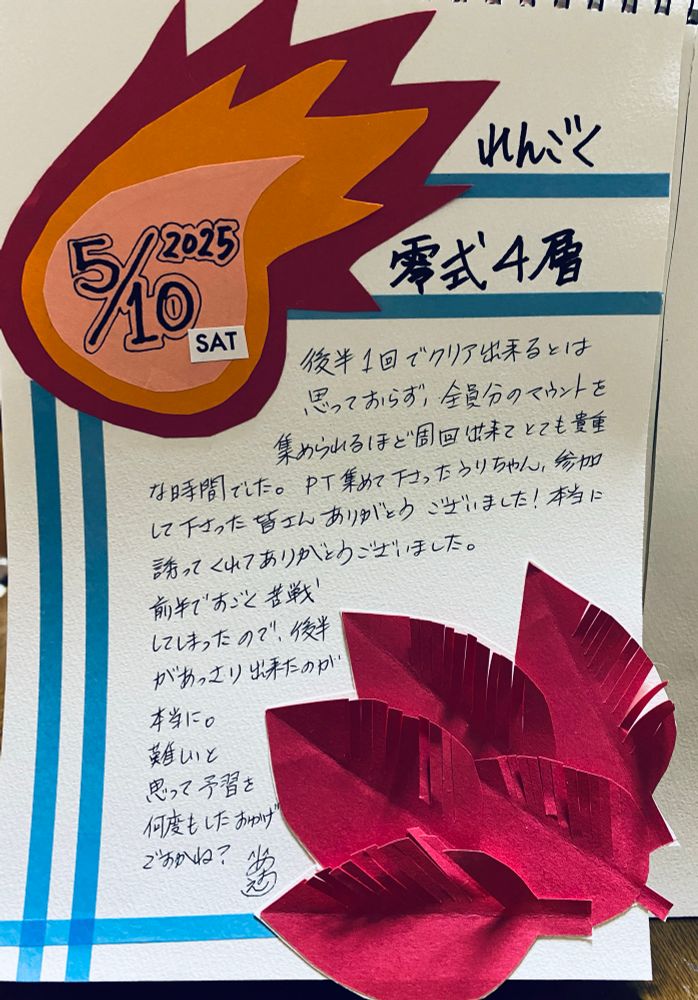 れんごく
零式4層
2025
5/10
SAT
後半1回でクリア出来るとは
思っておらず、全員分のマウントを
集められるほど周回出来てとても貴重
な時間でした。PT集めて下さったうりちゃん、参加
して下さった皆さんありがとうございました！本当に
誘ってくれてありがとうございました。
前半ですごく苦戦
してしまったので、後半
があっさり出来たのが
本当に。
難しいと
思って予習を
何度もしたおかげ
ですかね？